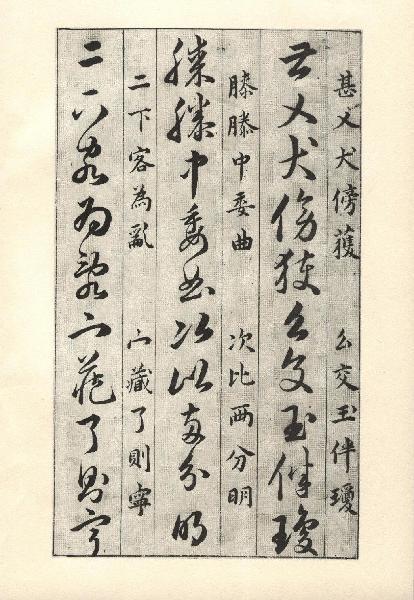 甚乂犬傍獲 么交玉伴瓊
甚乂犬傍獲么交玉伴瓊
膝滕中委曲 次比兩分明
膝滕中委曲次比兩分明
二下客為亂 宀藏了則寧
二下客為亂宀藏了則寧